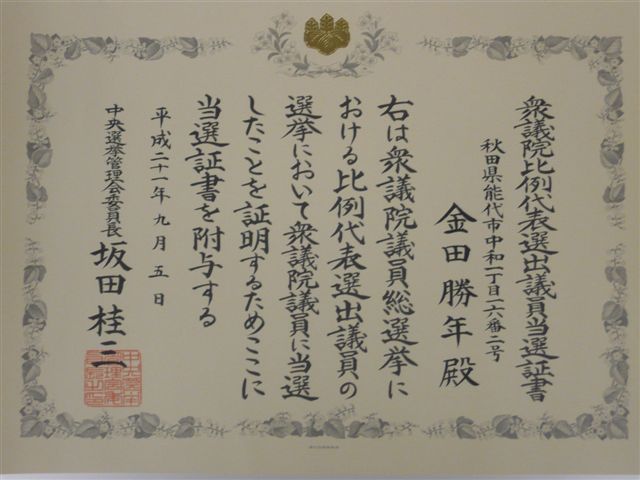 衆議院比例代表選出議員当選証書
秋田県能代市中和一丁目一六番二号
金田勝年殿
右は衆議院議員総選挙に
おける比例代表選出議員の
選挙において衆議院議員に当選
したことを証明するためここに
当選証書を附与する
平成二十一年九月五日
中央選挙管理会委員長 坂田桂三